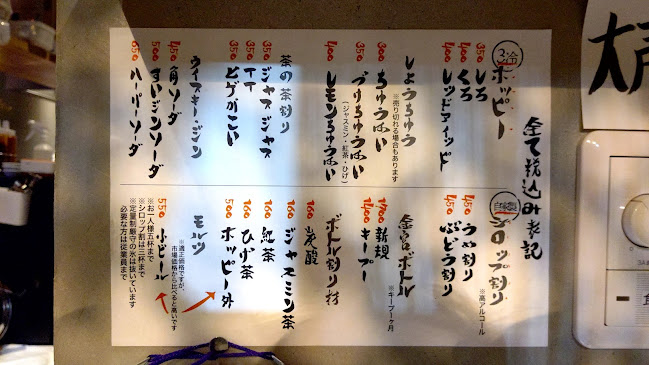 全て税込み表記
三冷
ホッピー
350 しろ
350 くろ
400 レッドアイッド
しょうちゅう
※売り切れる場合もあります
300 ちゅうはい
350 づけちゅうはい
(ジャスミン・紅茶・ひげ)
400 レモンちゅうはい
茶の茶割り
350 ジャズジャズ
350 TT
350 ヒゲがこい
ウイスキー・ジン
450 角ソーダ
500 すいジンソーダ
650 ハーパーソーダ
シロップ割り
※高アルコール
450 うめ割り
450 ぶどう割り
金宮ボトル
1700 新規
1400 キープ
※キープ一ヶ月
ボトル割り材
160 炭酸
160 ジャスミン茶
160 紅茶
160 ひげ茶
500 ホッピー外
モルツ
※適正価格ですが、
市場価格から比べると高いです
550 小ビール
※お一人様五杯まで
※シロップ割は三杯まで
※定量制厳守の氷は抜いています
必要な方は従業員まで
大